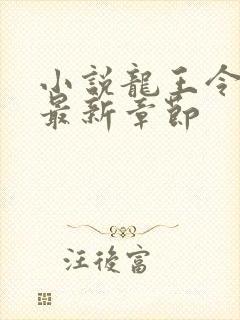 小說龍王令
最新章節
汪後富